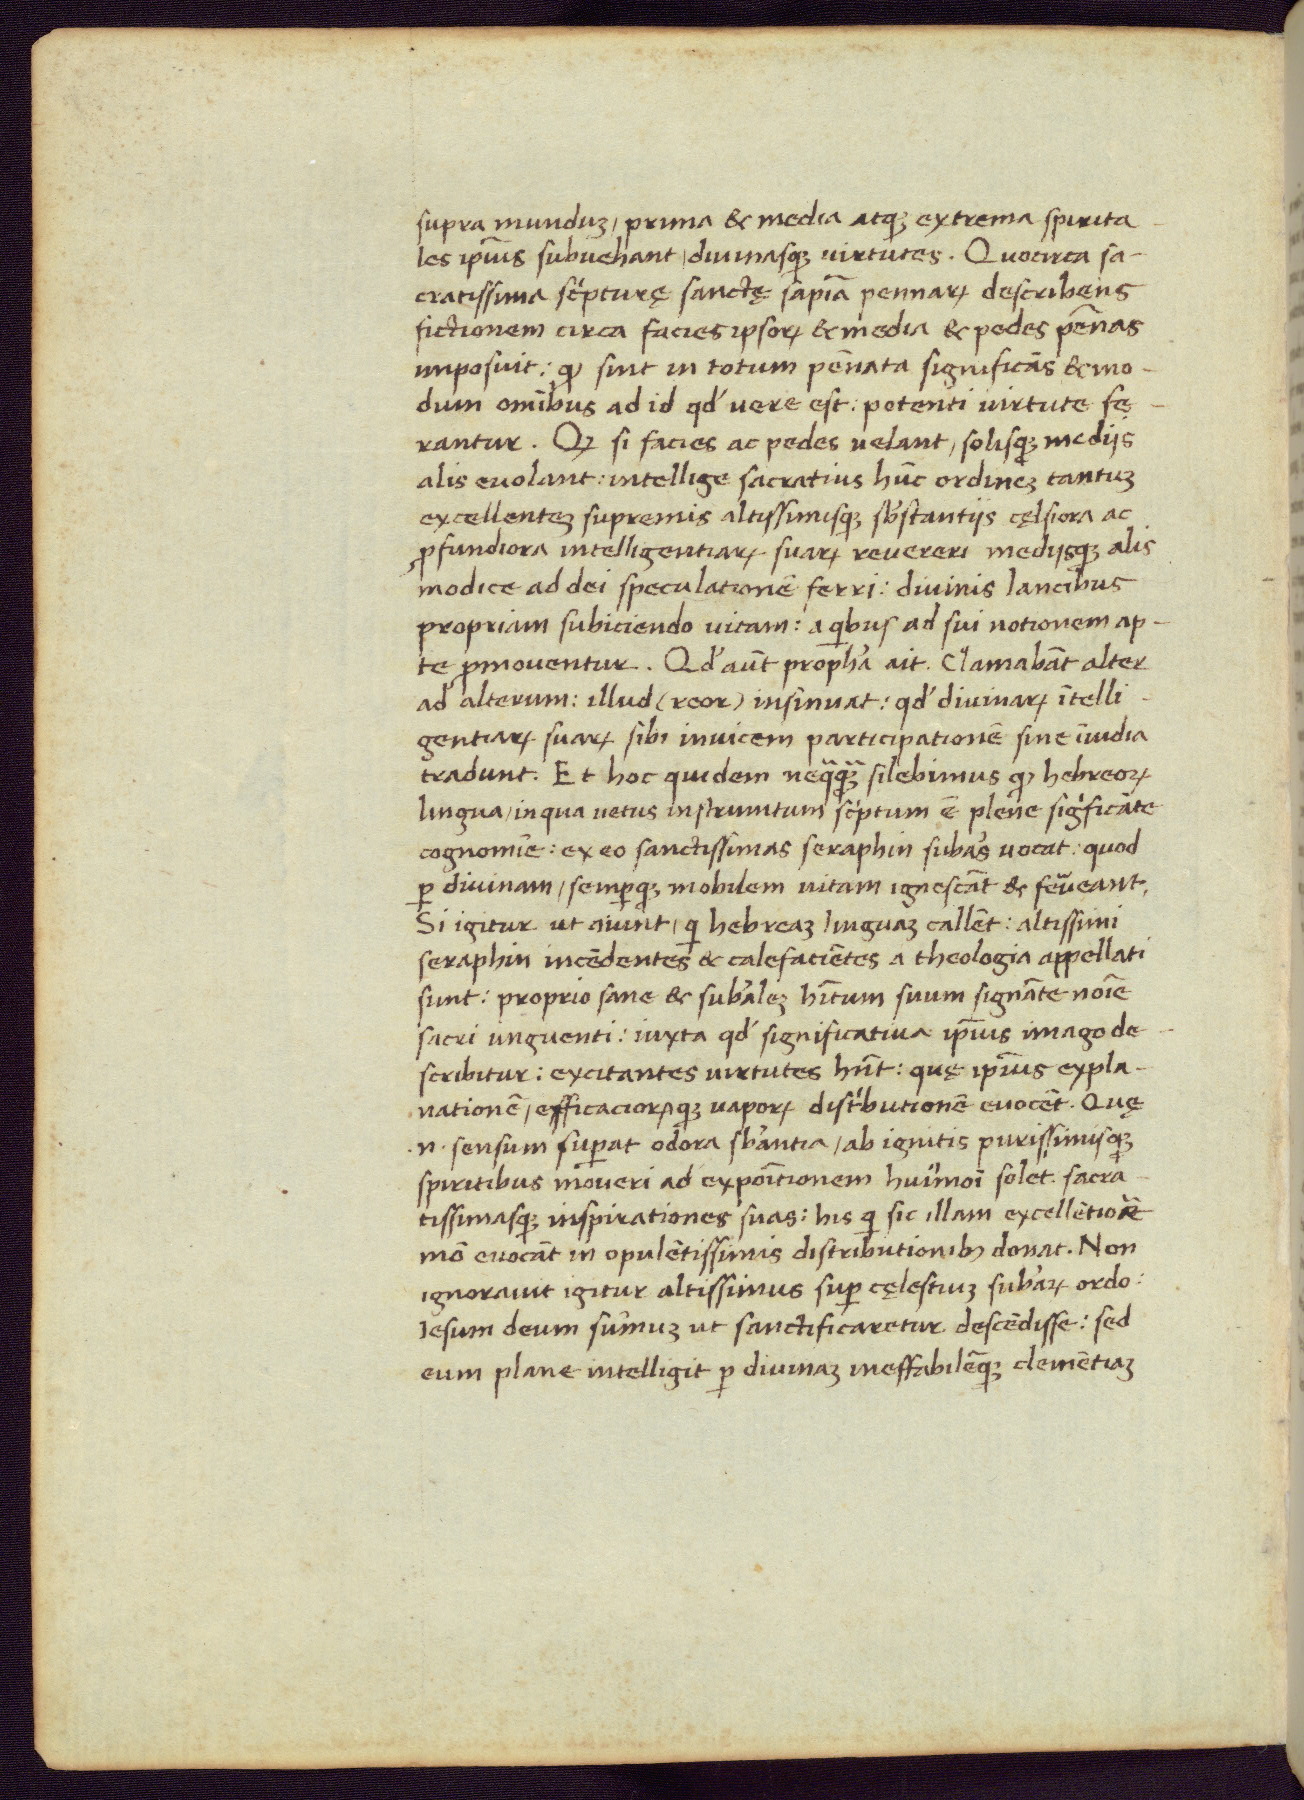 supra munduꝫ / prima & media atqꝫ extrema spirita-
les ip̄ius subuehant / diuinasqꝫ uirtutes. Quocirca sa-
cratissima sc̍pturę sanctę sapīa pennaꝝ describens
fictionem circa facies ipsoꝝ & media & pedes pēnas
imposuit: ꝙ sint in totum pēnata significās & mo-
dum om̄ibus ad id qd́ uere est: potenti uirtute fę-
rantur. Qꝫ si facies ac pedes uelant / solisqꝫ mediis
alis euolant: intellige sacratius hūc ordineꝫ tantuꝫ
excellenteꝫ supremis altissimisqꝫ sb̓stantijs cęlsiora ac
ꝓfundiora intelligentiaꝝ suaꝝ reuereri medijsqꝫ alis
modice ad dei speculationē ferri: diuinis lancibus
propriam subiciendo uitam: a qibus ad sui notionem ap-
te ꝓmouentur. Qd́ aūt proph̓a ait. Clamabāt alter
ad alterum: illud (reor) insinuat: qd́ diuinaꝝ ītelli-
gentiaꝝ suaꝝ sibi inuicem participationē sine īuidia
tradunt. Et hoc quidem neq̄qꝫ̄ silebimus ꝙ hebreoꝝ
lingua / in qua uetus instrumtum sc̍ptum ē plene sig̍ficāte
cognomīe: ex eo sanctissimas seraphin subas̓ uocat: quod
ꝑ divinam / semꝑqꝫ mobilem uitam ignescāt & ferueant.
Si igitur ut aiunt / qi hebreaꝫ linguaꝫ callēt: altissimi
seraphin incēdentes & calefaciētes a theologia appellati
sunt: proprio sane & sub̓aleꝫ hītum suum signāte noīe
sacri unguenti: iuxta qd́ significatiua ip̄ius imago de-
scribitur: excitantes uirtutes hn̄t: quę ip̄ius expla-
nationē / efficacioꝝqꝫ uapoꝝ dist̍butionē euocēt. Quę
.n. sensum suꝑat odora sb̓antia / ab ignitis purissimisqꝫ
spiritibus moueri ad expoītionem hui̓moi solet. sacra-
tissimasqꝫ inspirationes suas: his qi sic illam excellētiore
mō euocāt in opulētissimis distributionibꝫ donat. Non
ignorauit igitur altissimus suꝑ cęlestiuꝫ sub̓aꝝ ordo:
Iesum deum sūmuꝫ ut sanctificaretur descēdisse: sed
eum plane intelligit ꝑ diuinaꝫ ineffabilēqꝫ clemētiaꝫ